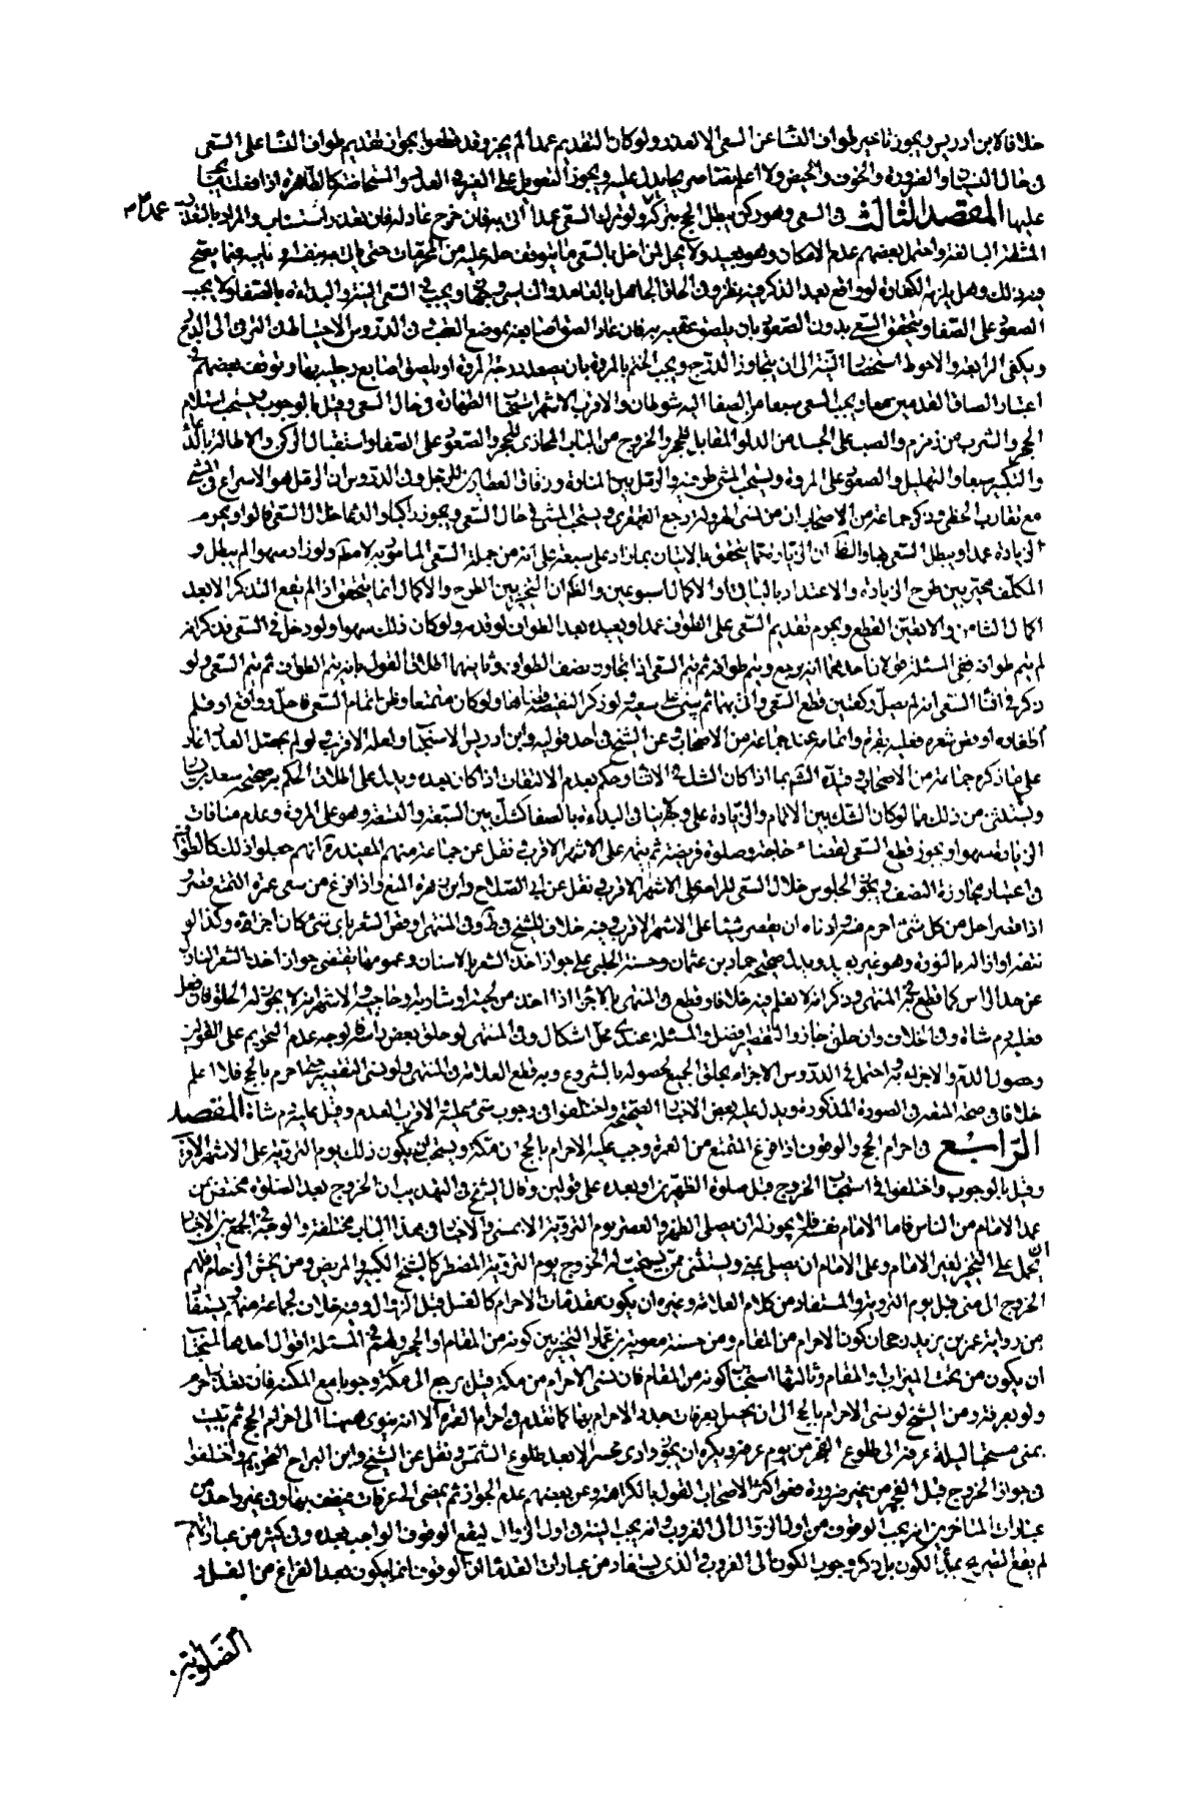 خلافا لابن ادريس ويجوز تاخير طواف النسا عن السعى الا لعذر ولو كان التقديم عمدا لم يجز وقد قطعوا بجواز تقديم طواف النسا على السعى
فى حال النسيان والضرورة والخوف والحيض ولا اعلم نصا صريحا يدل عليه ويجوز التعويل على الغير فى العدد والمستحاضة كالطاهرة اذا فعلت ما يجب
عليها المقصد الثالث فى السعى وهو ركن يبطل الحج بتركه ولو ترك السعى عمدا اتى به فان خرج عاد له فان تعذر استناب والمراد بالتعذر
المشقة البالغة واحتمل بعضهم عدم الامكان وهو بعيد ولا يحل لمن اخل بالسعى ما يتوقف حله عليه من المحرمات حتى ياتى به بنفسه او نايبه فيما يصح
فيه ذلك وهل يلزمه الكفارة لو واقع بعد الذكر فيه نظر وفى الحاق الجاهل بالعامد والناسى وجهان ويجب فى السعى النية والبداءة بالصفا ولا يجب
الصعود على الصفا ويتحقق السعى بدون الصعود بان يلصق عقبيه به فان عاد الصق اصابعه بموضع العقب وفى الدروس الاحتياط الترقى الى الدرج
ويكفى الرابعة والاحوط استحضار النية الى ان يتجاوز الدرج ويجب الختم بالمروة بان يصعد درجة المروة او يلصق اصابع رجليه بها وتوقف بعضهم فى
اعتبار الصاق القدمين معا ويجب السعى سبعا من الصفا اليه شوطان والاقرب الاشهر استحباب الطهارة فى حال السعى وقيل بالوجوب ويستحب استلام
الحجر والشرب من زمزم والصب على الجسد من الدلو المقابل للحجر والخروج من الباب المحاذى للحجر والصعود على الصفا واستقبال الركن والاطالة بالدعا
والتكبير سبعا والتهليل والصعود على المروة ويستحب المشى طرفيه والرمل بين المنارة وزقاق العطارين للرجل وفى الدروس ان الرمل هو الاسراع فى المشى
مع تقارب الخطى وذكر جماعة من الاصحاب ان من نسى الهرولة رجع القهقرى ويستحب المشى فى حال السعى ويجوز راكبا والدعا خلال السعى قالوا ويحرم
الزيادة عمدا ويبطل السعى بها والظ ان الزيادة انما يتحقق بالاتيان بما زاد على سبعة على انه من جملة السعى المامور به لا مطلقا ولو زاد سهوا لم يبطل و
المكلف مخير بين طرح الزيادة والاعتداد بالباقى او الاكمال اسبوعين والظ ان التخيير بين الطرح والاكمال انما يتحقق اذا لم يقع التذكر الا بعد
اكمال الثامن والا تعين القطع ويحرم تقديم السعى على الطواف عمدا ويعيده بعد الطواف لو قدمه ولو كان ذلك سهوا ولو دخل فى السعى فذكر انه
لم يتم طوافه ففى المسئلة قولان احدهما انه يرجع ويتم طوافه ثم يتم السعى اذا تجاوز نصف الطواف وثانيهما اطلاق القول بانه يتم الطواف ثم يتم السعى ولو
ذكر فى اثنا السعى انه لم يصل ركعتين قطع السعى واتى بهما ثم يبنى على سعيه ولو ذكر النقيصة قضاها ولو كان متمتعا وظن اتمام السعى فاحل وواقع او قلم
اظفاره او قص شعره فعليه بقرة واتمامه عند جماعة من الاصحاب وعن الشيخ فى احد قوليه وابن ادريس الاستحباب ولعله الاقرب ولو لم يحصل العدد اعاد
على ما ذكره جماعة من الاصحاب وقيده الشهيد بما اذا كان الشك فى الاثنا وحكم بعدم الالتفات اذا كان بعده ويدل على اطلاق الحكم به صحيحة سعيد بن يسار
ويستثنى من ذلك ما لو كان الشك بين الاتمام والزيادة على وجه لا ينافى البداءة بالصفا كالشك بين السبعة والتسعة وهو على المروة وعدم منافات
الزيادة سهوا ويجوز قطع السعى لقضاء حاجة وصلوة فريضة ثم يتمه على الاشهر الاقرب ونقل عن جماعة منهم المفيد انهم جعلوا ذلك كالطواف
فى اعتبار مجاوزة النصف ويجوز الجلوس خلال السعى للراحة على الاشهر الاقرب ونقل عن ابى الصلاح وابن زهرة المنع واذا فرغ من سعى عمرة التمتع قصر و
اذا قصر احل من كل شئ احرم منه وادناه ان يقصر شيئا على الاشهر الاقرب وفيه خلاف للشيخ فى ط وفى المنتهى وقص الشعر باى شئ كان اجزاه وكذا لو
نتفه او ازاله بالنورة وهو غير بعيد ويدل صحيحة حماد بن عثمان وحسنة الحلبى على جواز اخذ الشعر بالاسنان وعمومها يقتضى جواز اخذ الشعر النازل
عن حد الراس كما قطع به فى المنتهى وذكر انه لا يعلم فيه خلافا وقطع فى المنتهى بالاجزا اذا اخذ من لحيته او شاربه او حاجبه والاشهر انه لا يجوز له الحلق فان فعل
فعليه دم شاة وفى الخلاف وان حلق جاز والتقصير افضل والمسئلة عندى محل اشكال وفى المنتهى لو حلق بعض راسه فالوجه عدم التحريم على القولين
وحصول الدم والاجزاء به واحتمل فى الدروس الاجزاء بحلق الجميع لحصوله بالشروع وبه قطع العلامة فى المنتهى ولو نسى التقصير حتى احرم بالحج فلا اعلم
خلافا فى صحة المتعة فى الصورة المذكورة ويدل عليه بعض الاخبار الصحيحة واختلفوا فى وجوب شئ عليه الاقرب العدم وقيل عليه دم شاة المقصد
الرابع فى احرام الحج والوقوف اذا فرغ المتمتع من العمرة وجب عليه الاحرام بالحج من مكة ويستحب ان يكون ذلك يوم التروية على الاشهر الاقرب
وقيل بالوجوب واختلفوا فى استحباب الخروج قبل صلوة الظهرين او بعده على قولين وقال الشيخ فى التهذيب ان الخروج بعد الصلوة مختص بمن
عدا الامام من الناس فاما الامام نفسه فلا يجوز له ان يصلى الظهر والعصر يوم التروية الا بمنى والاخبار فى هذا الباب مختلفة والوجه فى الجمع بين الاخبار
الحمل على التخيير لغير الامام وعلى الامام ان يصلى بمنى ويستثنى ممن يستحب له الخروج يوم التروية المضطر كالشيخ الكبير والمريض ومن يخشى الزحام فلهم
الخروج الى منى قبل يوم التروية والمستفاد من كلام العلامة وغيره ان يكون مقدمات الاحرام كالغسل قبل الزوال وفيه خلاف لجماعة منهم ويستفاد
من رواية عمر بن يزيد رجحان كون الاحرام من المقام ومن حسنة معوية بن عمار التخيير بين كونه من المقام او الحجر ولهم فى المسئلة اقوال احدها استحباب
ان يكون من تحت الميزاب والمقام وثالثها استحباب كونه من المقام فان نسى الاحرام من مكة قيل يرجع الى مكة وجوبا مع المكنة فان تعذر احرم
ولو بعرفة ومن الشيخ لو نسى الاحرام بالحج الى ان يحصل بعرفات جدد الاحرام بها كما تقدم فى احرام العمرة الا انه ينوى ههنا الى احرام الحج ثم يبيت
بمنى مستحبا ليلة عرفة الى طلوع الفجر من يوم عرفة ويكره ان يجوز وادى محسر الا بعد طلوع الشمس ونقل عن الشيخ وابن البراج التحريم واختلفوا
فى جواز الخروج قبل الفجر من غير ضرورة فعن اكثر الاصحاب القول بالكراهة وعن بعضهم عدم الجواز ثم يمضى الى عرفات فيقف بها وفى غير واحد من
عبارات المتاخرين انه يجب الوقوف من اول الزوال الى الغروب وانه يجب النية فى اول الزوال ليقع الوقوف الواجب بعده وفى كثير من عباراتهم
لم يقع التصريح بمبدأ الكون بل ذكر وجوب الكون الى الغروب والذى يستفاد من عبارات القدما ان الوقوف انما يكون بعد الفراغ من الغسل و
الصلوتين